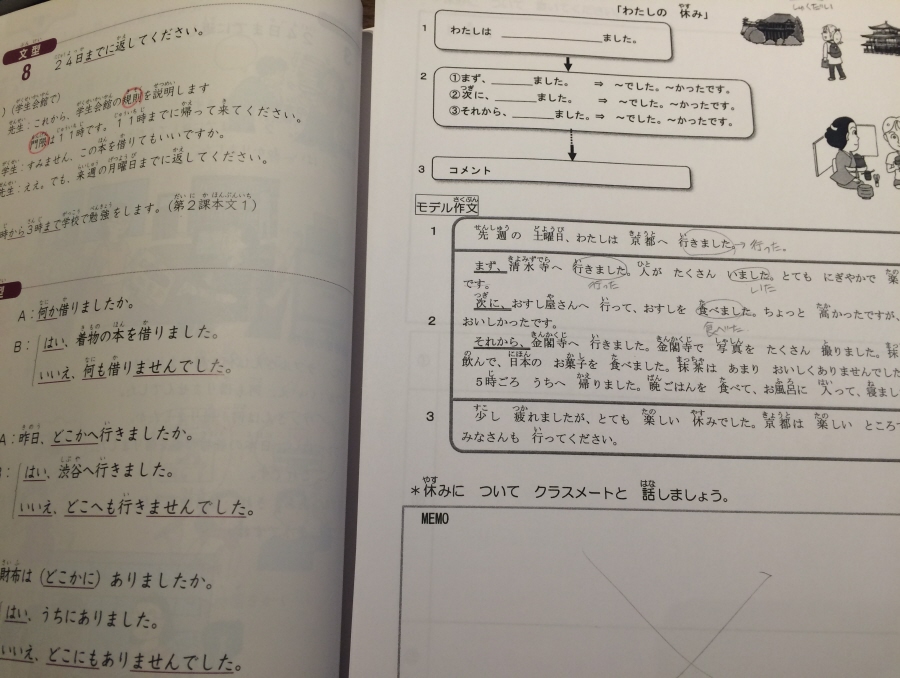 文型
8
24日までに返してください。
(学生会館で)
先生：これから、学生会館の規則を説明します
門限は11時です。11時までに帰って来てください。
学生：すみません、この本を借りてもいいですか。
先生：ええ。でも、来週の月曜日までに返してください。
時から3時まで学校で勉強をします。(第2課本文1)
A：何か借りましたか。
B：はい、着物の本を借りました。
いいえ、何も借りませんでした。
A：昨日、どこかへ行きましたか。
はい、渋谷へ行きました。
いいえ、どこへも行きませんでした。
財布は(どこかに)ありましたか。
はい、うちにありました。
いいえ、どこにもありませんでした。
「わたしの 休み」
1
わたしは ＿＿＿ ました。
2
①まず、＿＿＿ました。 ⇒ ～でした。～かったです。
②次に、＿＿＿ました。 ⇒ ～でした。～かったです。
③それから、＿＿＿ました。⇒ ～でした。～かったです。
3 コメント
モデル作文
1 先週の 土曜日、わたしは 京都へ 行きました 行った。
まず、清水寺へ 行きました。人が たくさん いました。とても にぎやかで 楽
行った いた
です。
次に、おすし屋さんへ 行って、おすしを 食べました。ちょっと 高かったですが、
食べた
2 おいしかったです。
それから、金閣寺へ 行きました。金閣寺で 写真を たくさん 撮りました。抹
飲んで、日本の お菓子を 食べました。抹茶は あまり おいしくありませんでした
5時ごろ うちへ 帰りました。晩ごはんを 食べて、お風呂に 入って、寝まし
3 少し 疲れましたが、とても 楽しい 休みでした。京都は 楽しい ところで
みなさんも 行ってください。
＊休みに ついて クラスメートと 話しましょう。
MEMO